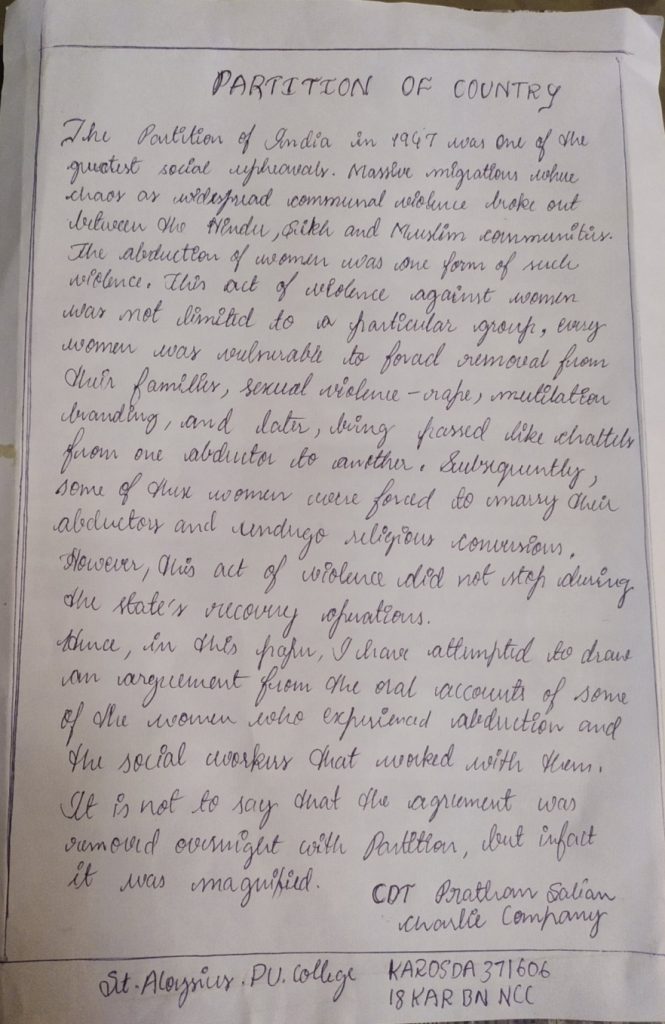 PARTITION OF COUNTRY
The Partition of India in 1947 was one of the
greatest social upheavals. Massive migrations where
chaos as widespread communal violence broke out
between the Hindu, Sikh and Muslim communities.
The abduction of women was one form of such
violence. This act of violence against women
was not limited to a particular group, every
women was vulnerable to forced removal from
their families, sexual violence - rape, mutilation
branding, and later, being passed like chattels
from one abductor to another. Subsequently,
some of these women were forced to marry their
abductors and undergo religious conversions.
However, this act of violence did not stop during
the state's recovery operations.
Hence, in this paper, I have attempted to draw
an arguement from the oral accounts of some
of the women who experienced abduction and
the social workers that worked with them.
It is not to say that the agriement was
removed overnight with Partition, but infact
it was magnified.
CDT Pratham Salian
Charlie Company
St. Aloysius. PU. College
KAROSDA 371606
18 KAR BN NCC